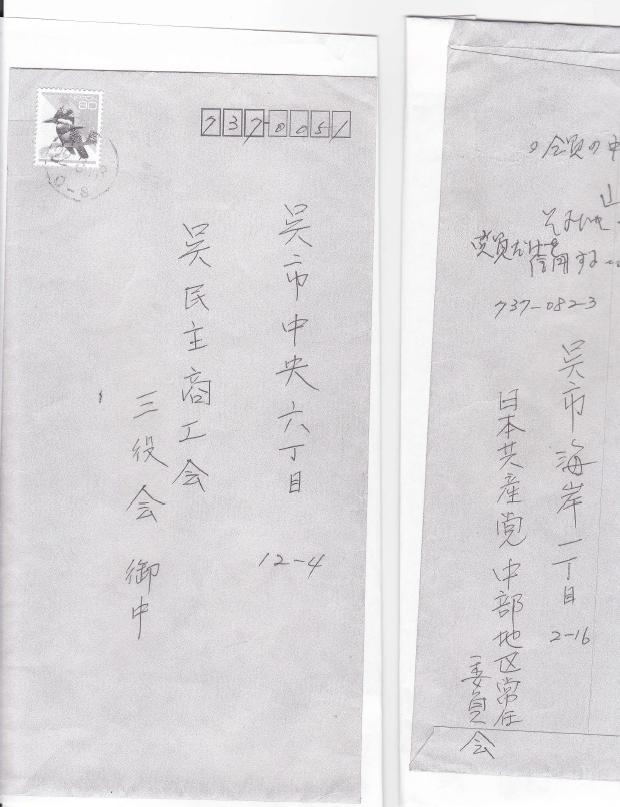 80
737-0051
呉市中央六丁目
12-4
呉民主商工会
三役会 御中
会員の中
党員だけを
信用する
737-0823
呉市海岸一丁目
2-16
日本共産党中部地区常任
委員会